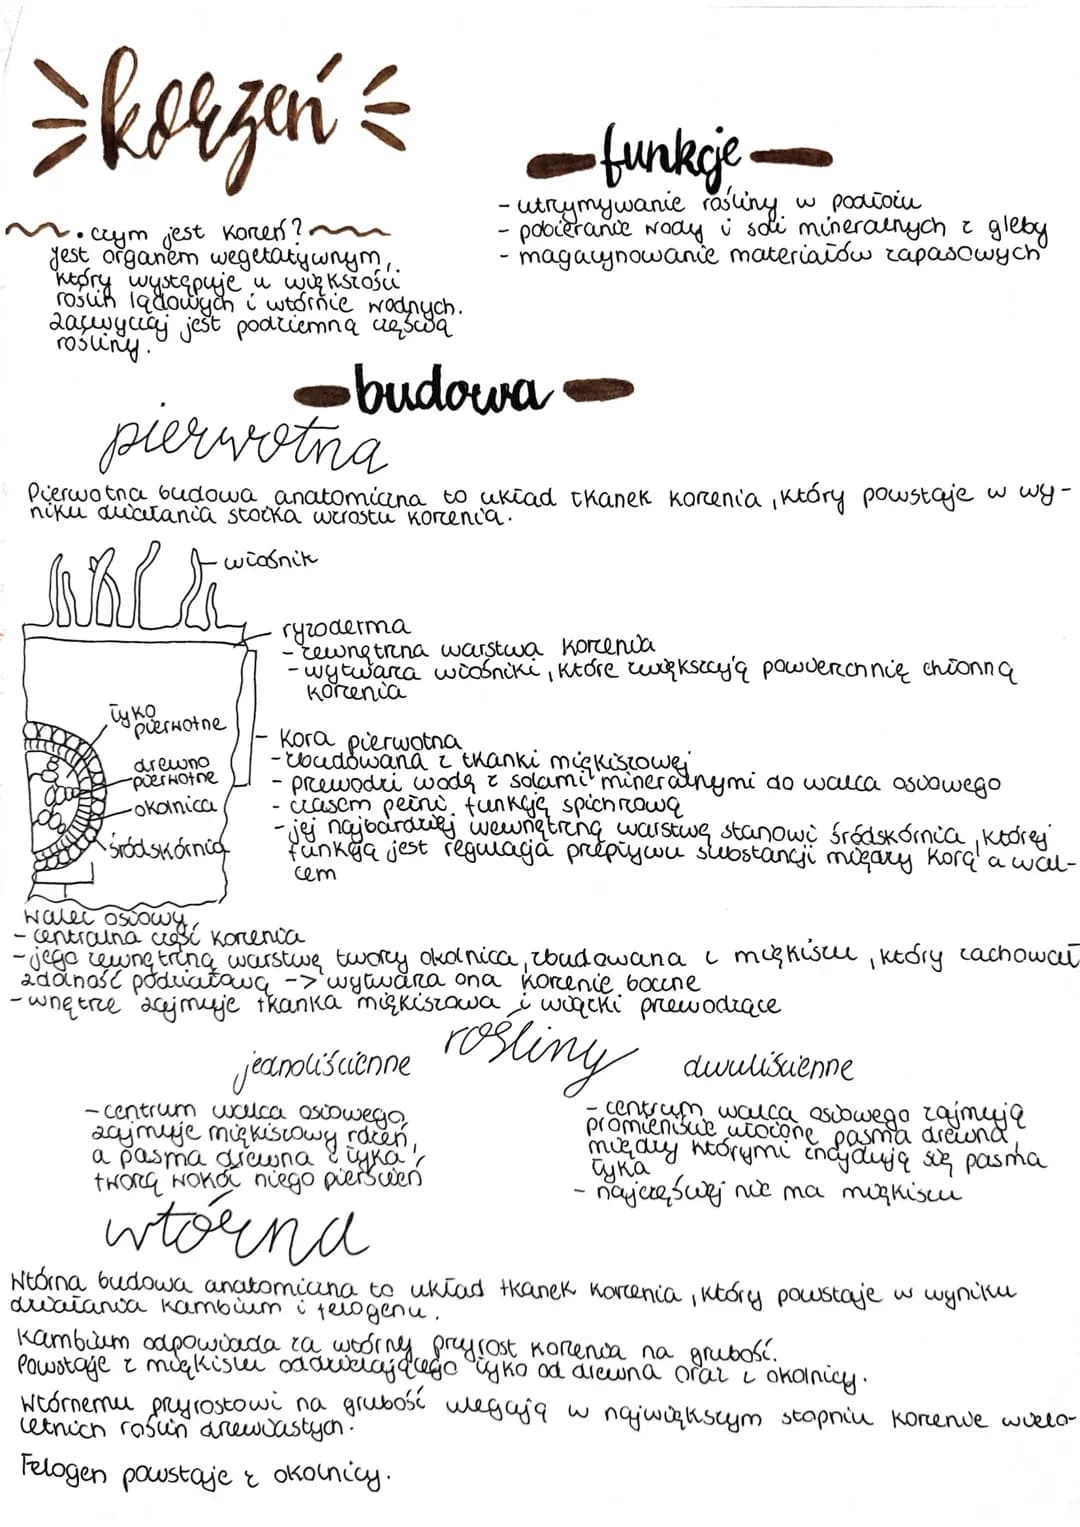 korzeń
funkcje
- utrzymywanie rośliny w podłożu
- pobieranie wody i soli mineralnych z gleby
- magazynowanie materiałów zapasowych
• czym jest korzeń?
Jest organem wegetatywnym,
który występuje u większości
roślin lądowych i wtórnie wodnych.
Zazwyczaj jest podziemną częścią
rośliny.
budowa
pierwotna
Pierwotna budowa anatomiczna to układ tkanek korzenia, który powstaje w wy-
niku działania stożka wzrostu korzenia.
włośnik
ryzoderma
- zewnętrzna warstwa korzenia
- wytwarza włośniki, które zwiększają powierzchnię chłonną
korzenia
łyko
pierwotne
drewno
pierwotne
okolnica
śródskórnia
Kora pierwotna
- zbudowana z tkanki miękiszowej
- przewodzi wodę z solami mineralnymi do walca osiowego
- czasem pełni funkcję spichrzową
- jej najbardziej wewnętrzną warstwę stanowi śródskórnia, której
funkcją jest regulacja przepływu substancji między korą a wal-
cem
Walec osiowy
- centralna część korzenia
- jego zewnętrzną warstwę tworzy okolnica, zbudowana z miękiszu, który zachował
zdolność podziałową -> wytwarza ona korzenie boczne
- wnętrze zajmuje tkanka miękiszowa i wiązki przewodzące
rośliny
jednoliścienne
- centrum walca osiowego
zajmuje miękiszowy rdzeń,
a pasma drewna i łyka
tworzą wokół niego pierścień
dwuliścienne
- centrum walca osiowego zajmują
promieniście ułożone pasma drewna,
między którymi znajdują się pasma
łyka
- najczęściej nie ma miękiszu
wtórna
Wtórna budowa anatomiczna to układ tkanek korzenia, który powstaje w wyniku
działania kambium i felogenu.
Kambium odpowiada za wtórny przyrost korzenia na grubość.
Powstaje z miękiszu oddzielającego łyko od drewna oraz z okolnicy.
Wtórnemu przyrostowi na grubość ulegają w największym stopniu korzenie wielo-
letnich roślin drzewiastych.
Felogen powstaje z okolnicy.